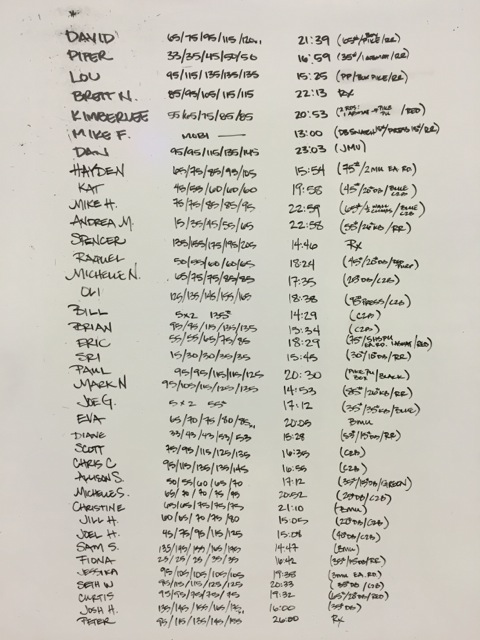 DAVID 65/75/95/115/120 21:39 (65#/BOX PIKE/RR)
PIPER 33/35/45/50/50 16:59 (35#/1 /RR)
LOU 95/115/135/135/135 15:25 (PP/BOX PIKE/RR)
BRETT N. 85/95/105/115/115 22:13 RX
KIMBERLEE 55/65/75/85/85 20:53 /RED)
MIKE F. MOBI — 13:00 (DB SNATCH /RR)
DAN 95/95/115/135/145 23:03 (JMU)
HAYDEN 65/75/85/95/105 15:54 (75#/2MU EA. RD.)
KAT 45/55/60/60/60 19:58 (45#/25DB/BLUE C2B)
MIKE H. 75/75/85/85/95 22:59 (65#/ WALL CLIMBS/BLUE C2B)
ANDREA M. 15/35/45/55/65 22:58 (55#/26KB/RR)
SPENCER 135/155/175/195/205 14:46 RX
RAQUEL 50/55/60/60/65 18:24 (45#/25DB/ )
MICHELLE N. 65/75/75/85/85 17:35 (25DB/C2B)
OLI 125/135/145/155/165 18:38 (95 PRESS/C2B)
BILL 5x2 135# 14:29 (C2B)
BRIAN 95/95/115/135/135 13:34 (C2B)
ERIC 55/55/65/75/85 18:29 (75#/5HSPU EA. RD. /RED)
SRI 15/30/30/35/35 15:45 (30#/15DB/RR)
PAUL 95/95/115/115/125 20:30 (PIKE PU BOX/BLACK)
MARK N 95/105/115/125/135 14:53 (85#/26KB/RR)
JOE G. 5x2 55# 17:12 (35#/35KB/BLUE)
EVA 65/70/75/80/85 20:05 BMU
DIANE 33/43/43/53/53 15:28 (53#/15DB/RR)
SCOTT 75/95/115/125/135 16:35 (C2B)
CHRIS C 95/115/135/135/145 16:55 (C2B)
ALLISON S. 50/55/60/65/70 17:12 (35#/15DB/GREEN)
MICHELLE S. 65/70/70/75/95 20:52 (25DB/C2B)
CHRISTINE 65/65/75/75/75 21:10 (BMU)
JILL H. 60/65/70/75/80 15:05 (20DB/C2B)
JOEL H. 45/75/95/115/125 15:08 (40DB/C2B)
SAM S. 135/145/155/165/175 14:47 (BMU)
FIONA 25/25/25/35/35 16:42 (35#/15DB/RR)
JESSICA 95/105/105/105/105 19:38 (3MU EA. RD.)
SETH W 95/95/115/125/125 20:33 (35DB/C2B)
CURTIS 95/95/75/75/95 19:32 (65#/25DB/RED)
JOSH H. 135/145/155/165/175 16:00 (35DB)
PETER 95/115/135/145/155 26:00 RX